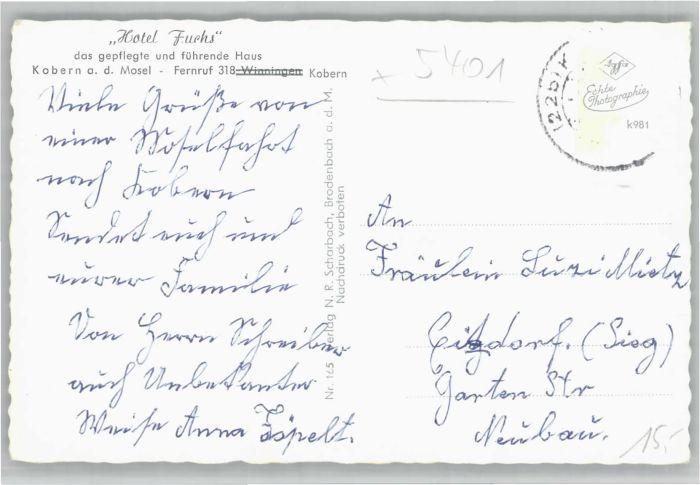 „Hotel Fuchs"
das gepflegte und führende Haus
Kobern a. d. Mosel - Fernruf 318 Winningen Kobern
Viele Grüße von
einer Moselfahrt
nach Kobern
Sendet euch und
eurer Familie
Von Herrn Schreiber
auch Unbekanter
Weise Anna Zöpelt.
Nr. 165 Verlag N. R. Scharbach, Brodenbach a. d. M.
Nachdruck verboten
x 5401
(22b)K
Agfa
Echte
Photographie
K981
An
Fräulein Luzi Mietz
Eitzdorf. (Sieg)
Garten Str
Neubau.
15,-